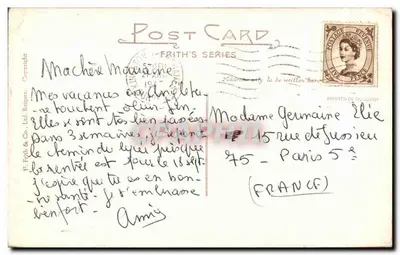 POST CARD
FRITH'S SERIES
F. Frith & Co. Ltd. Reigate. Copyright
Ma chère Marraine
Mes vacances en Anglete
re touchent à leur fin.
Elles se sont très bien passées.
Dans 3 semaines, je
le chemin du lycée puisque
la rentrée est pour le 15 sept.
J'espère que tu es en bon-
ne santé. Je t'embrasse
bien fort.
Annie
Madame Germaine Elie
15 rue de Jussieu
75 - Paris 5e
(FRANCE)